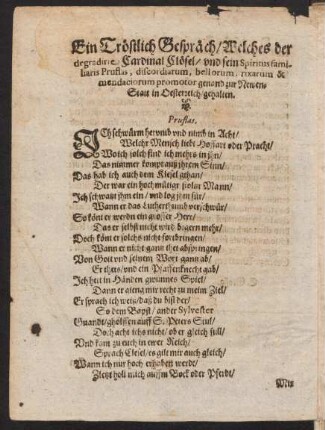 Ein Tröstlich Gespräch/ Welches der
degradirte Cardinal Clösel/ vnd sein Spiritus fami-
liaris Pruflas, discordiarum, bellorum, rixarum &
mendaciorum promotor genand zur Newen-
Statt in Oesterreich gehalten.
Pruflas.
ICh schwärm herumb vnd nimb in Acht/
Welchr Mensch liebt Hoffart oder Pracht/
Wo ich solch find ich mehrs in jhn/
Das nimmer kompt auß jhrem Sinn/
Das hab ich auch dem Klesel gthan/
Der war ein hochmütiger stolzer Mann/
Ich schwatzt jhm ein/ vnd log jhm für/
Wann er das Lutherthumb verschwür/
So könt er werdn ein grosser Herr/
Das er selbst nicht wird begern mehr/
Doch könt er solchs nicht fortbringen/
Wann er nicht gantz thet abspringen/
Von Gott vnd seinem Wort gantz ab/
Er thets/ vnd ein Pfaffenknecht gab/
Ich hett in Händen gwunnes Spiel/
Dann er gieng mir recht zu meim Ziel/
Er sprach ich weis/ daß du bist der/
So dem Bapst/ ander Sylvester
Guandt/ gholffen auff S. Peters Stul/
Doch acht ichs nicht/ ob er gleich full/
Vnd kam zu euch in ewr Reich/
Sprach Clesel/ es gilt mir auch gleich/
Wann ich nur hoch erhaben werde/
Zletzt holt mich auffm Bock oder Pferdt/
Mit